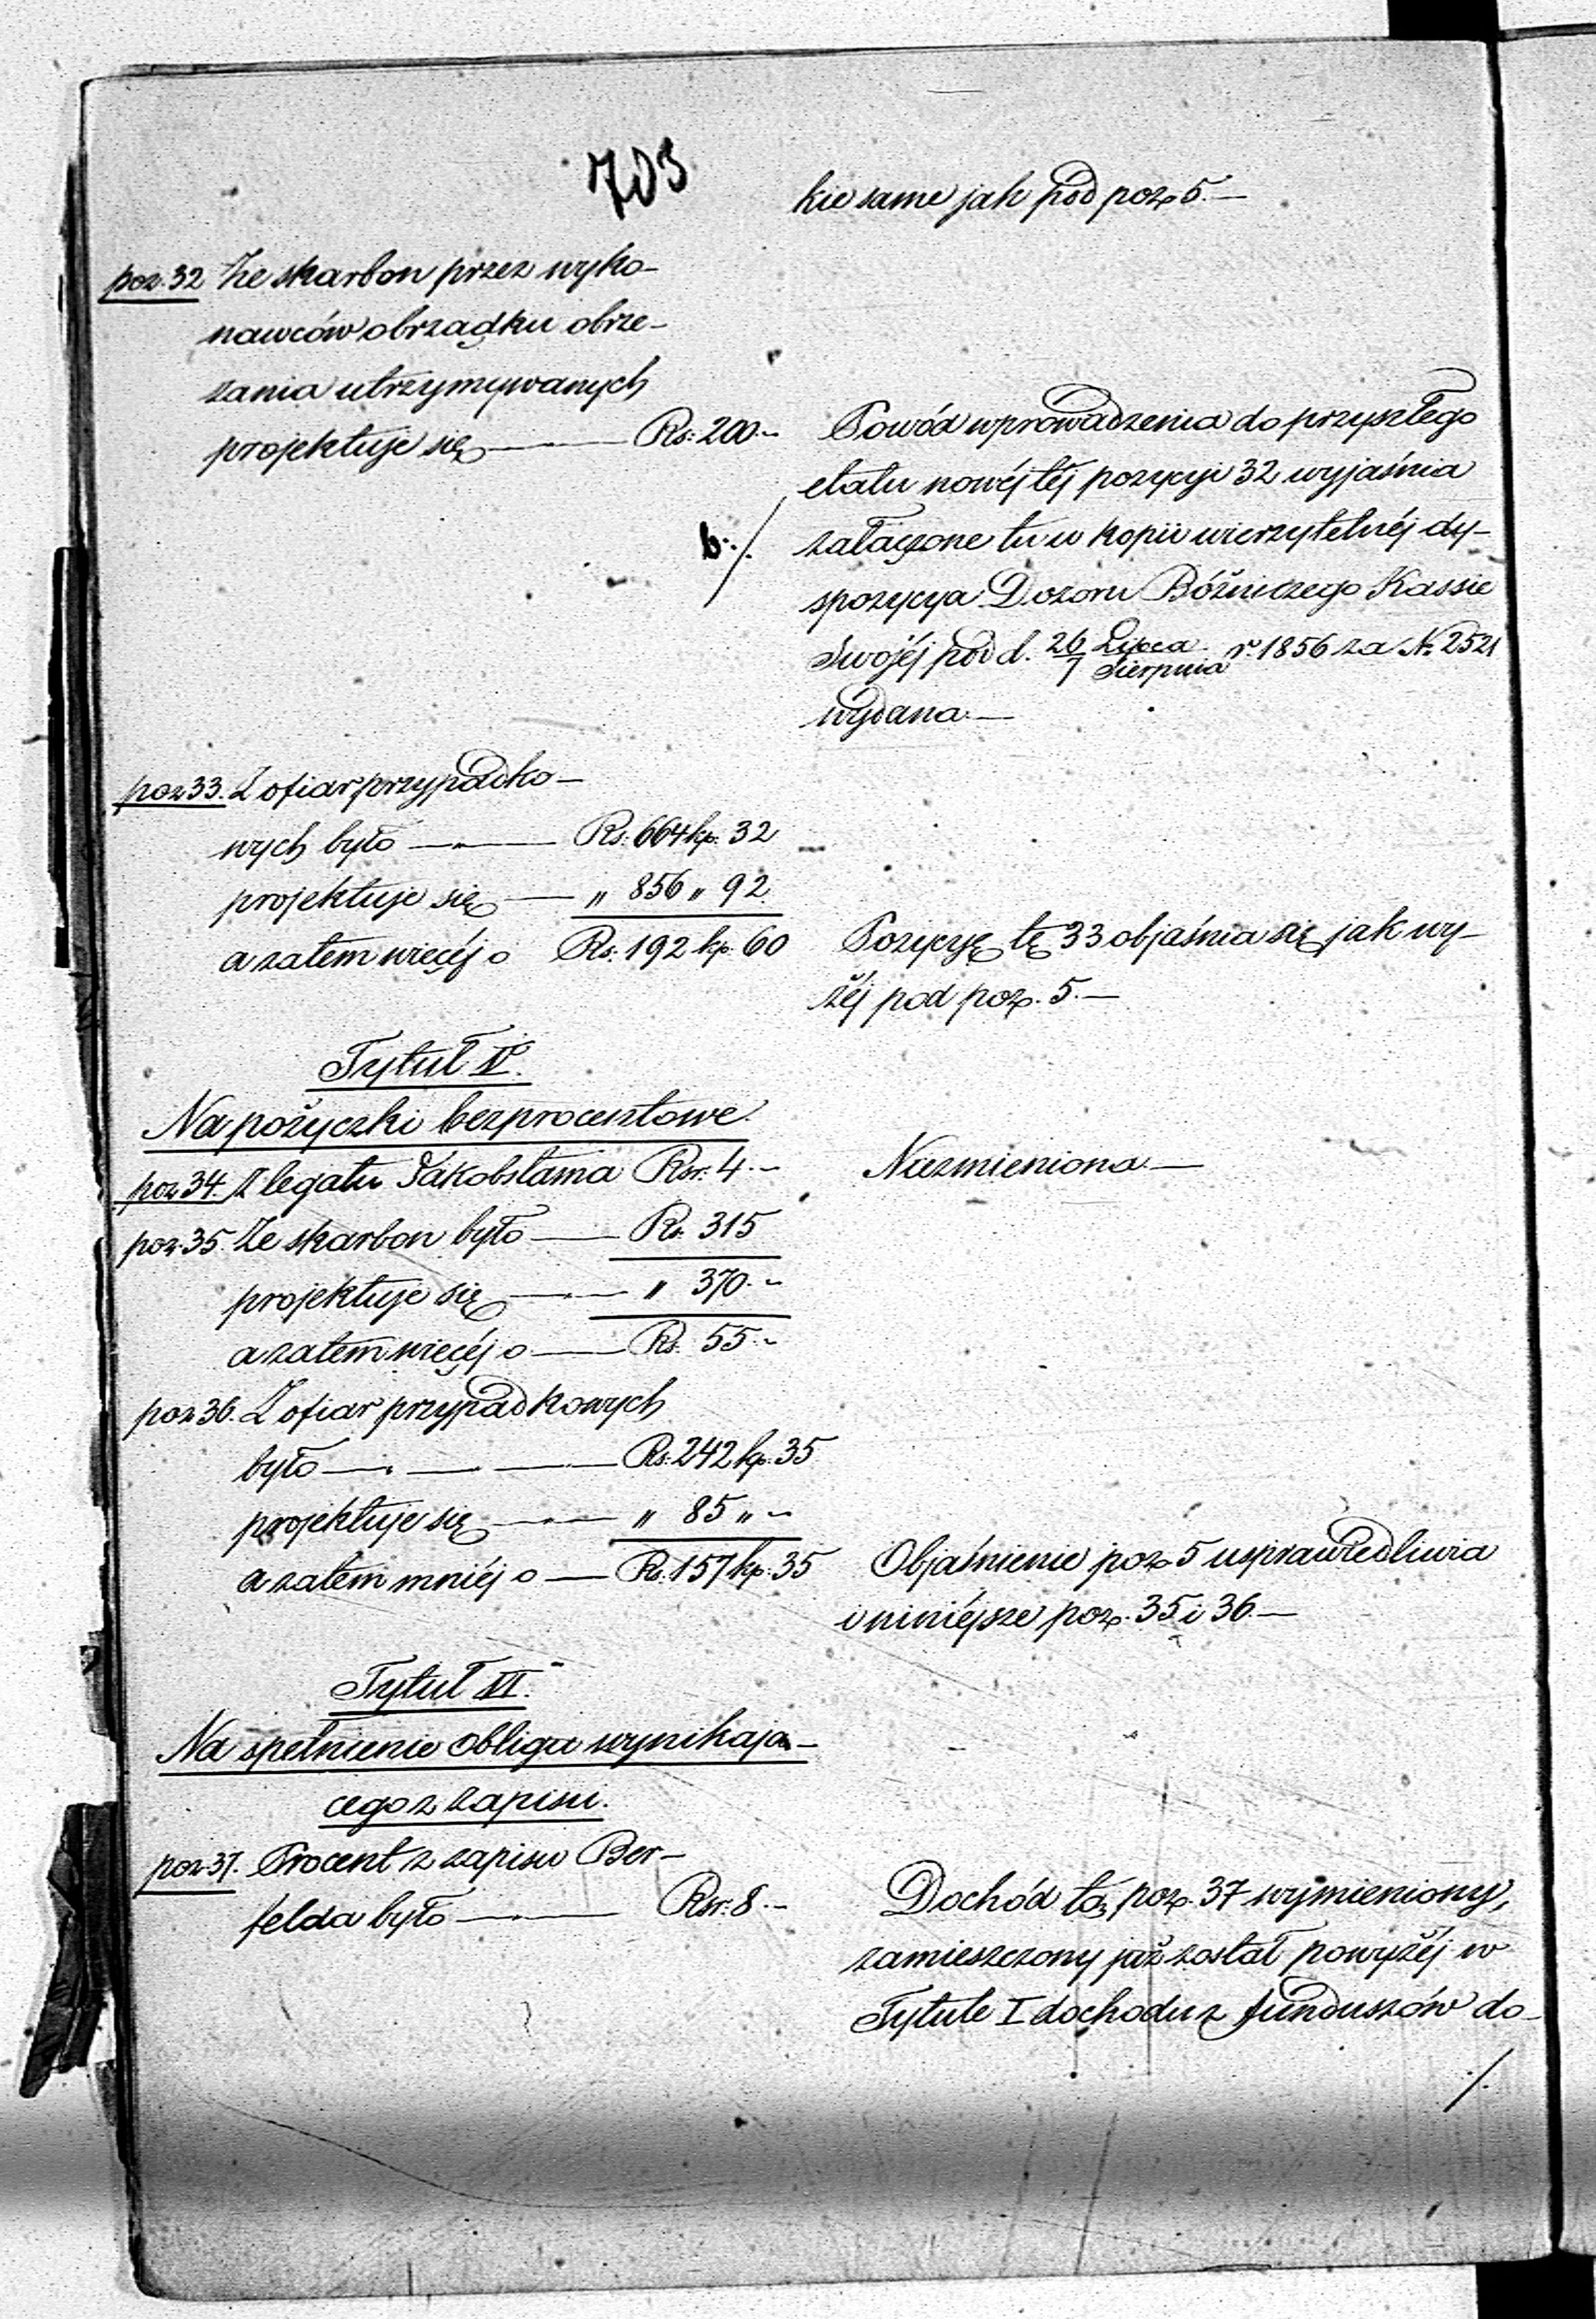 703
kie same jak pod poz. 5.—
poz. 32 Ze skarbon przez wyko-
nawców obrządku obrze-
zania utrzymywanych
projektuje się —— Rs: 200.-
Powód wprowadzenia do przyszłego
etatu nowéj téj pozycyi 32 wyjaśnia
b. /. załączone tu w kopii wierzytelnéj dy-
spozycya Dozoru Bóźniczego Kassie
Swojéj pod d. 26 Lipca / 7 Sierpnia r. 1856 za N. 2521
wydana.—
poz 33. Z ofiar przypadko-
wych było —— Rs: 664 kp. 32
projektuje się —— " 856 " 92.
a zatem więcéj o Rs: 192 kp. 60
Pozycyę tę 33 objaśnia się jak wy-
żéj pod poz. 5.—
Tytuł V.
Na pożyczki bezprocentowe.
poz 34. Z legatu Jakobstama Rsr. 4.-
Niezmieniona.—
poz. 35. Ze skarbon było —— Rs. 315
projektuje się —— " 370.-
a zatem więcéj o —— Rs. 55.-
poz 36. Z ofiar przypadkowych
było —— Rs. 242 kp. 35
projektuje się —— " 85 " -
a zatem mniéj o —— Rs. 157 kp. 35
Objaśnienie poz. 5 usprawiedliwia
i niniéjsze poz. 35 i 36.—
Tytuł VI.
Na spełnienie obligu wynikają-
cego z zapisu.
poz. 37. Procent z zapisu Ber-
felda było —— Rsr. 8.-
Dochód tą poz. 37 wymieniony,
zamieszczony już został powyżéj w
Tytule I dochodu z funduszów do-
./.